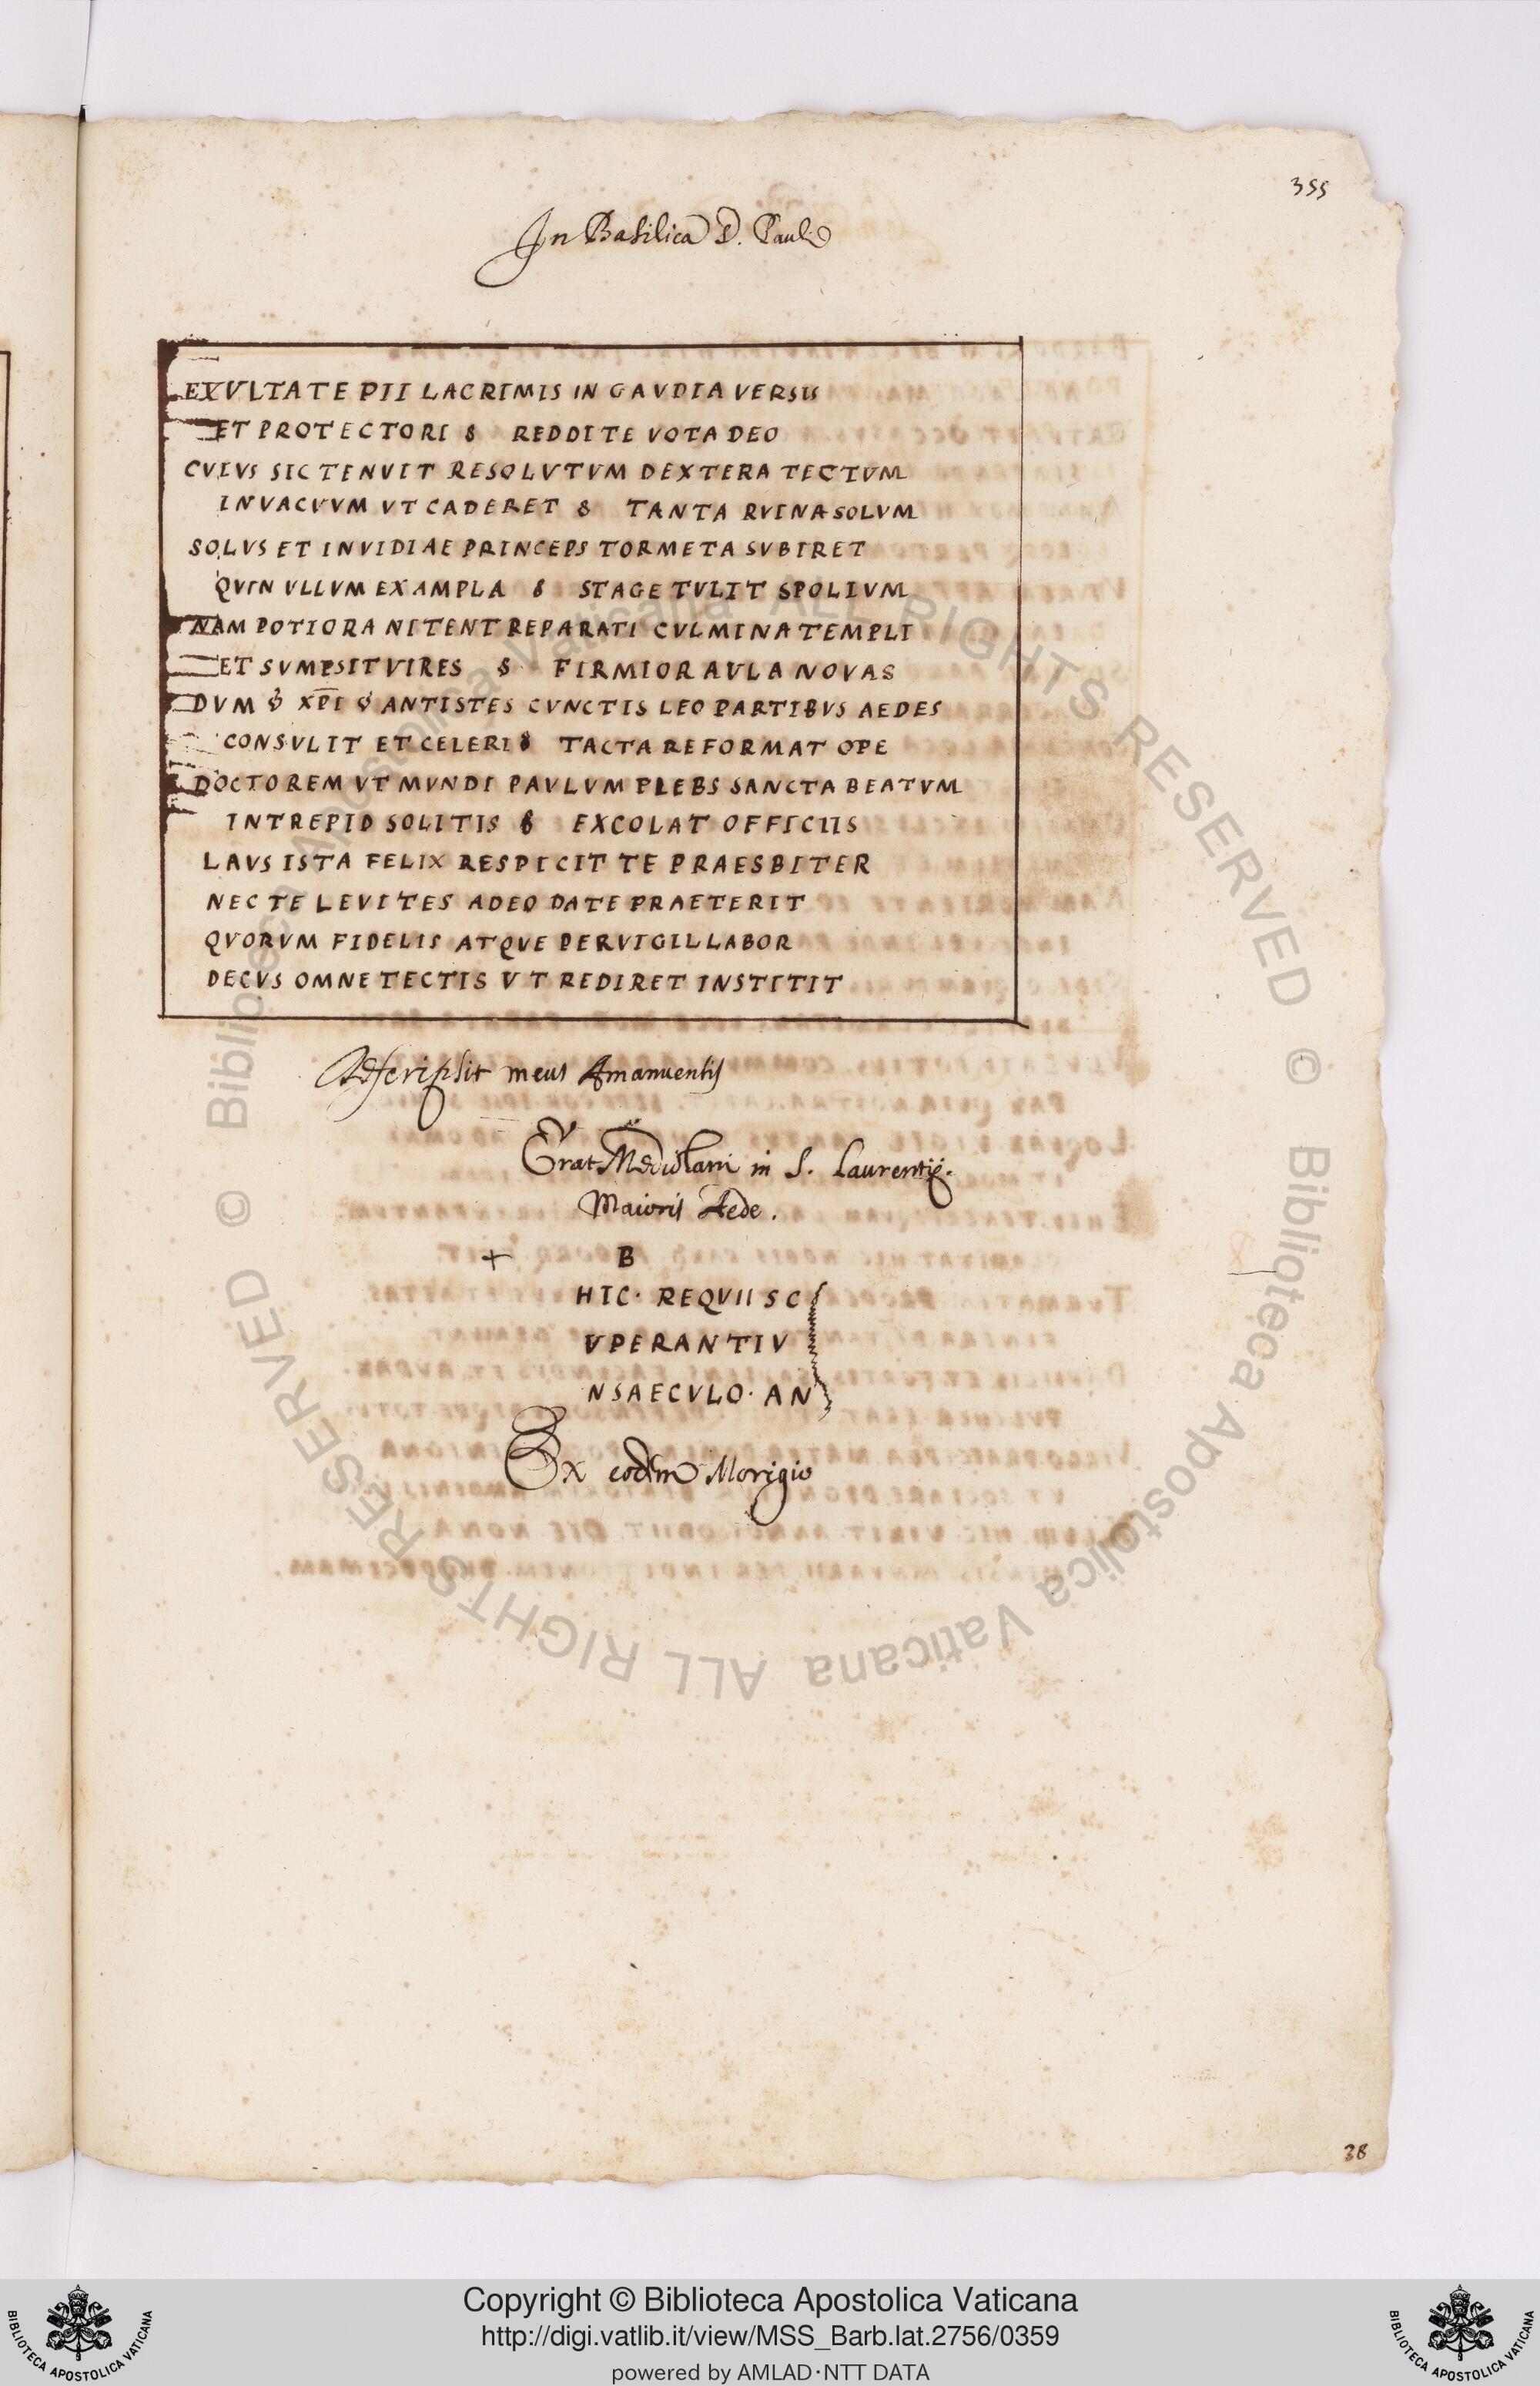 355
In Basilica D. Pauli
EXVLTATE PII LACRIMIS IN GAVDIA VERSIS
ET PROTECTORI REDDITE VOTA DEO
CVIVS SIC TENVIT RESOLVTVM DEXTERA TECTVM
IN VACVVM VT CADERET TANTA RVINA SOLVM
SOLVS ET INVIDIAE PRINCEPS TORMETA SVBIRET
QVIN VLLVM EX AMPLA STAGE TVLIT SPOLIVM
NAM POTIORA NITENT REPARATI CVLMINA TEMPLI
ET SVMPSIT VIRES FIRMIOR AVLA NOVAS
DVM XPI ANTISTES CVNCTIS LEO PARTIBVS AEDES
CONSVLIT ET CELERI TACTA REFORMAT OPE
DOCTOREM VT MVNDI PAVLVM PLEBS SANCTA BEATVM
INTREPID SOLITIS EXCOLAT OFFICIIS
LAVS ISTA FELIX RESPICIT TE PRAESBITER
NEC TE LEVITES ADEO DATE PRAETERIT
QVORVM FIDELIS ATQVE PERVIGIL LABOR
DECVS OMNE TECTIS VT REDIRET INSTITIT
Adscripsit meus Amanuensis
Erat Mediolani in S. Laurentij
Maioris Aede.
+ B
HIC· REQVIISC
VPERANTIV
NSAECVLO· AN
Ex eodem Morigio
38
© Biblioteca Apostolica Vaticana ALL RIGHTS RESERVED © Biblioteca Apostolica Vaticana ALL RIGHTS RESERVED
BIBLIOTECA APOSTOLICA VATICANA
Copyright © Biblioteca Apostolica Vaticana
http://digi.vatlib.it/view/MSS_Barb.lat.2756/0359
powered by AMLAD·NTT DATA
BIBLIOTECA APOSTOLICA VATICANA